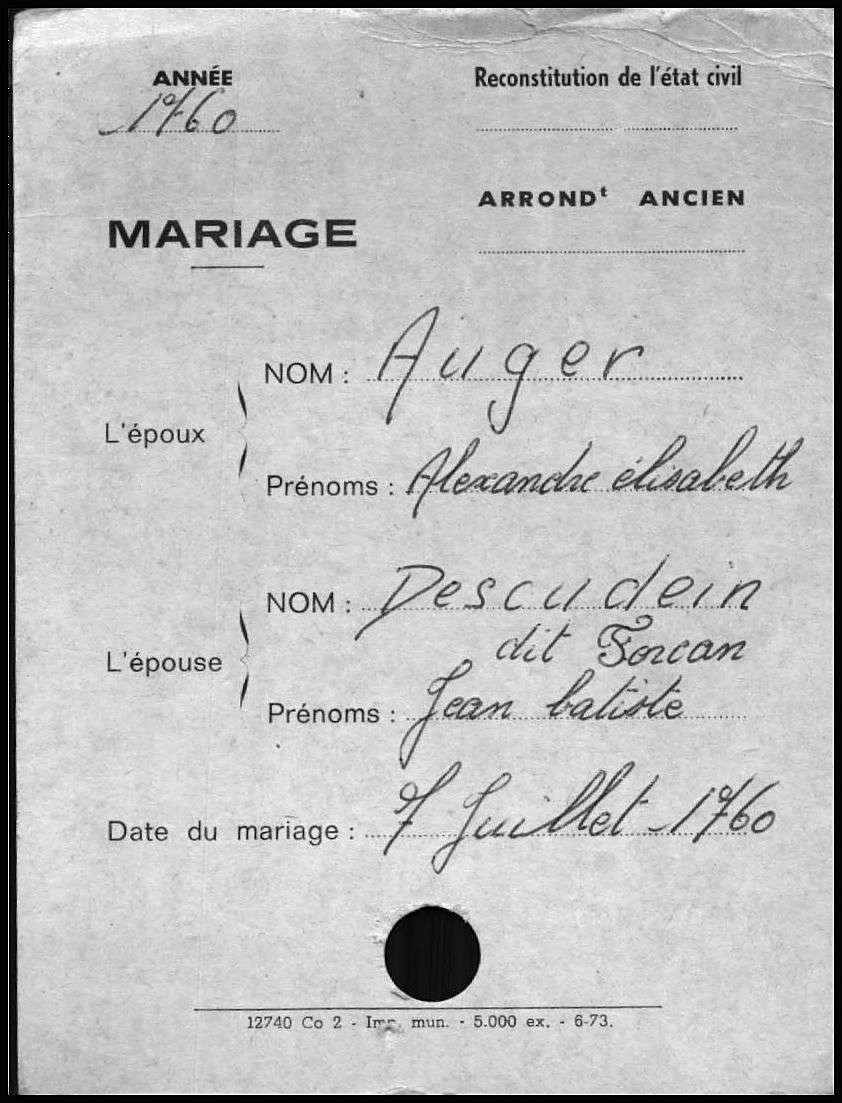 ANNÉE
1760
Reconstitution de l'état civil
ARRONDt ANCIEN
MARIAGE
L'époux
NOM : Auger
Prénoms : Alexandre élisabeth
L'épouse
NOM : Descudein
dit Forcan
Prénoms : Jean batiste
Date du mariage : 7 Juillet 1760
12740 Co 2 - Imp. mun. - 5.000 ex. - 6-73.